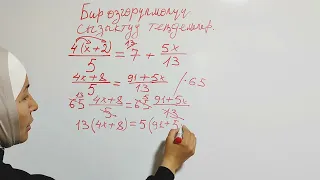 Бир өзгөрүлмөлүү
сызыктуу теңдемелер.
4(x+2)/5 = 7 + 5x/13
4x+8/5 = 91+5x/13 /·65
65 4x+8/5 = 65 91+5x/13
13(4x+8)=5(91+5